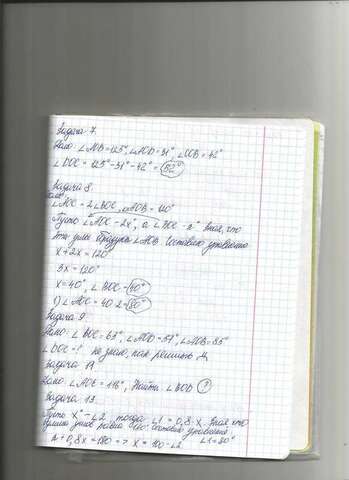 Задача 7.
Дано: ∠AOB=125°, ∠AOD=31°, ∠COB=42°
∠DOC = 125°-31°-42°=52°
Задача 8.
∠AOC=2∠BOC, ∠AOB=120°
Пусть ∠AOC-2x°, а ∠BOC-x° Зная, что
эти углы образуют ∠AOB составим уравнение
x+2x=120°
3x=120°
x=40°, ∠BOC=40°
1) ∠AOC=40·2=80°
Задача 9
Дано: ∠BOC=63°, ∠AOD=51°, ∠AOB=85°
∠DOC=? не знаю, как решить
Задача 11
Дано: ∠AOC=116°, Найти ∠BOD ?
Задача 13.
Пусть x°-∠2, тогда ∠1=0,8·x. Зная, что
сумма углов равна 180 составим уравнение
x+0,8x=180 => x=100-∠2 ∠1=80°